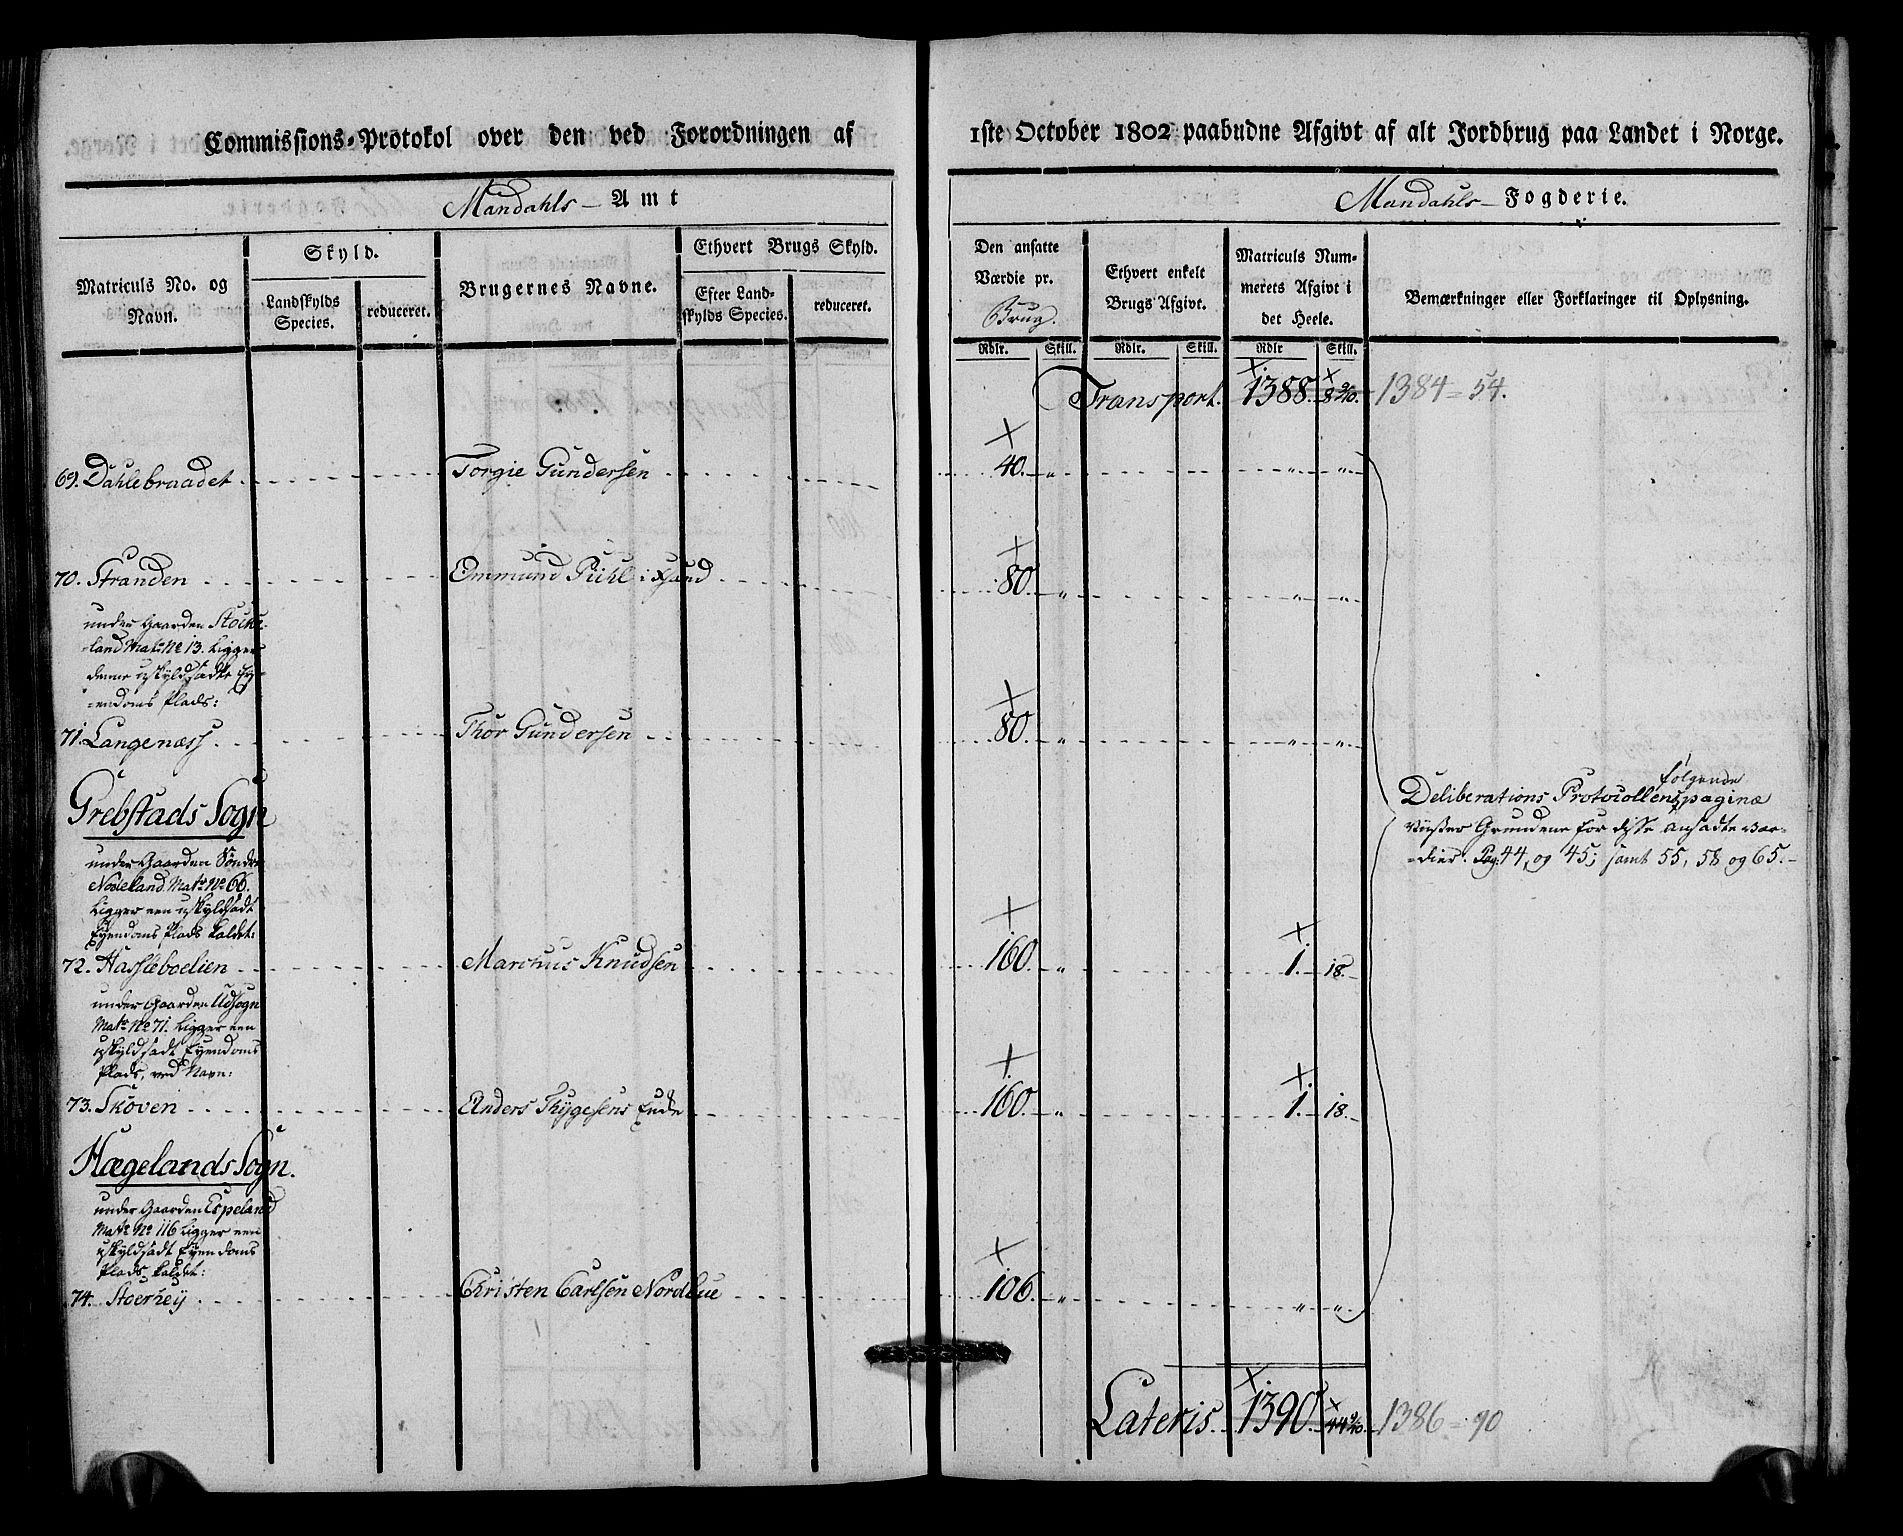 Commissions-Protokol over den ved Forordningen af 1ste October 1802 paabudne Afgivt af alt Jordbrug paa Landet i Norge.
Mandahls – Amt
Mandahls – Fogderie.
Matriculs No. og Navn.
Skyld.
Landskylds Species.
reduceret.
Brugernes Navne.
Ethvert Brugs Skyld.
Efter Landskylds Species.
reduceret.
Den ansatte Værdie pr. Brug.
Ethvert enkelt Brugs Afgivt.
Matriculs Nummerets Afgivt i det Heele.
Bemærkninger eller Forklaringer til Oplysning.
Rdlr. Skill. Rdlr. Skill. Rdlr Skill.
Transport. 1388. 1384 = 54.
69. Dahlebraadet Torgie Gundersen 40. „ „ „
70. Stranden Emmund Piihl i Xsand 80. „ „ „
under Gaarden Stocke-
-land Matr: No 13. Ligger
denne uskyldsadte Ey-
-endoms Plads:
71. Langenæss Thor Gundersen 80. „ „ „
Grebstads Sogn
under Gaarden Søndre
Nodeland Matr No 66.
Ligger een uskyldsadt
Eyendoms Plads kaldet:
72. Hassleboelien Marcus Knudsen 160. „ 1. 18.
under Gaarden Udsogn
Matr No 71. Ligger een
uskyldsadt Eyendoms
Plads, ved Navn:
73. Skoven Anders Thygesens Enke 160. „ 1. 18.
Hægelands Sogn.
under Gaarden Espeland
Matr No 116 Ligger een
uskyldsadt Eyendoms
Plads, kaldet:
74. Stoerhey Christen Carlsen Nordbue 106. „ „ „
følgende
Deliberations Protocollens paginæ
viiser Grundene for disse ansadte vær-
-dier. Pag: 44, og 45; samt 55, 58 og 65.
Lateris. 1390. 1386 = 90